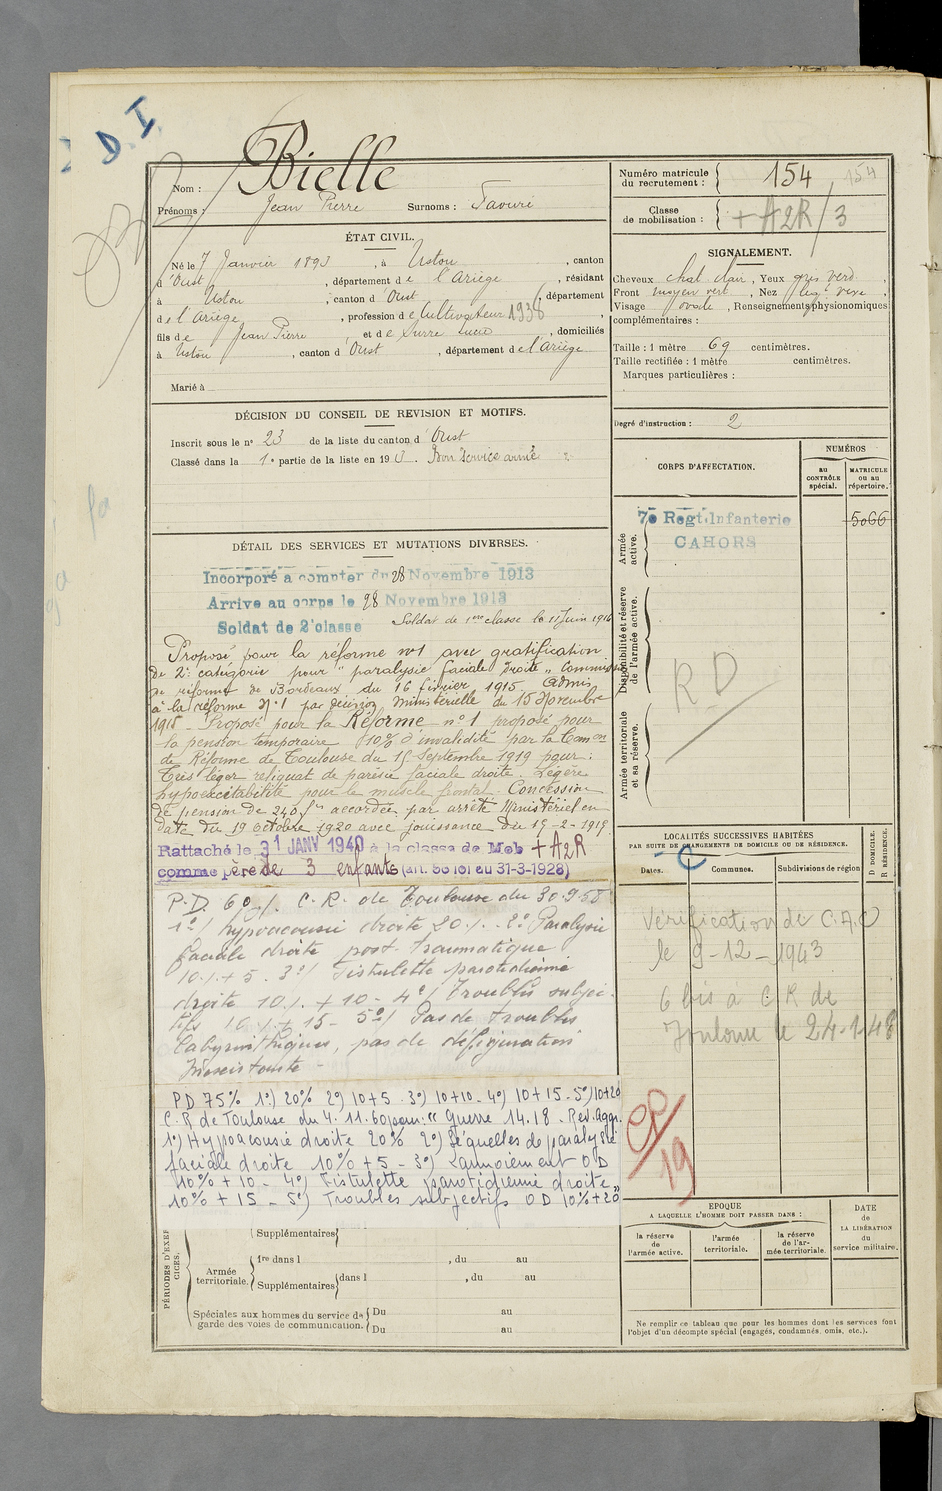 D. I.
Nom : Bielle
Prénoms : Jean Pierre Surnoms :
ÉTAT CIVIL.
Né le 7 Janvier 1893, à Ustou, canton
d'Oust, département de l'Ariège, résidant
à Ustou, canton d'Oust, département
de l'Ariège, profession de Cultivateur 1938,
fils de Jean Pierre et de Surre Lucie, domiciliés
à Ustou, canton d'Oust, département de l'Ariège
Marié à
DÉCISION DU CONSEIL DE REVISION ET MOTIFS.
Inscrit sous le n° 23 de la liste du canton d'Oust
Classé dans la 1e partie de la liste en 19 3. Bon service armé
DÉTAIL DES SERVICES ET MUTATIONS DIVERSES.
Incorporé à compter du 28 Novembre 1913
Arrive au corps le 28 Novembre 1913
Soldat de 2e classe
Soldat de 1ere classe le 11 Juin 1914
Proposé pour la réforme n°1 avec gratification
de 2e catégorie pour "paralysie faciale droite" Commission
de réforme de Bordeaux du 16 février 1915. Admis
à la réforme N°1 par décision Ministérielle du 15 Novembre
1915 - Proposé pour la Réforme n°1 proposé pour
la pension temporaire 10% d'invalidité par la Comon
de Réforme de Toulouse du 15 Septembre 1919 pour :
Très léger reliquat de parésie faciale droite. Légère
hypoexcitabilité pour le muscle frontal. Concession
de pension de 240 f accordée par arrêté Ministériel en
date du 19 Octobre 1920 avec jouissance du 15-2-1919
Rattaché le 31 JANV 1940 à la classe de Mob + A2R
comme père de 3 enfants (art. 58 loi du 31-3-1928)
P.D. 60% C.R. de Toulouse du 30.9.58
1°/ hypoacousie droite 20% - 2° Paralysie
faciale droite post-traumatique
10% + 5 - 3°/ Fistulette parotidienne
droite 10% + 10 - 4°/ Troubles subjec-
tifs 10% + 15 - 5°/ Pas de troubles
labyrinthiques, pas de défiguration
inexistante -
PD 75% 1°) 20% 2°) 10+5 - 3°) 10+10 - 4°) 10+15 - 5°) 10+20
C.R de Toulouse du 4.11.60 pour : "Guerre 14.18. Rev. Aggr.
1°) Hypoacousie droite 20% 2°) Séquelles de paralysie
faciale droite 10% + 5 - 3°) Larmoiement OD
10% + 10 - 4°) Fistulette parotidienne droite
10% + 15 - 5°) Troubles subjectifs OD 10% + 20"
PÉRIODES D'EXERCICES.
Supplémentaires
Armée territoriale.
1re dans l , du au
Supplémentaires dans l , du au
Spéciales aux hommes du service de garde des voies de communication.
Du au
Du au
Numéro matricule du recrutement : 154 154
Classe de mobilisation : + A2R/3
SIGNALEMENT.
Cheveux chat. clair, Yeux gris verd.,
Front moyen vert, Nez ,
Visage ovale, Renseignements physionomiques
complémentaires :
Taille : 1 mètre 69 centimètres.
Taille rectifiée : 1 mètre centimètres.
Marques particulières :
Degré d'instruction : 2
CORPS D'AFFECTATION.
NUMÉROS
au CONTRÔLE spécial.
MATRICULE ou au répertoire.
Armée active.
7e Regt. Infanterie
CAHORS
5066
Disponibilité et réserve de l'armée active.
RD
Armée territoriale et sa réserve.
LOCALITÉS SUCCESSIVES HABITÉES
PAR SUITE DE CHANGEMENTS DE DOMICILE OU DE RÉSIDENCE.
C
Dates. Communes. Subdivisions de région
D DOMICILE.
R RÉSIDENCE.
Vérification de C.A.O
le 9-12-1943
6 bis à C R de
Toulouse le 24-1-48
CP/19
EPOQUE
A LAQUELLE L'HOMME DOIT PASSER DANS :
la réserve de l'armée active.
l'armée territoriale.
la réserve de l'armée territoriale.
DATE de LA LIBÉRATION du service militaire.
Ne remplir ce tableau que pour les hommes dont les services font
l'objet d'un décompte spécial (engagés, condamnés, omis, etc.).